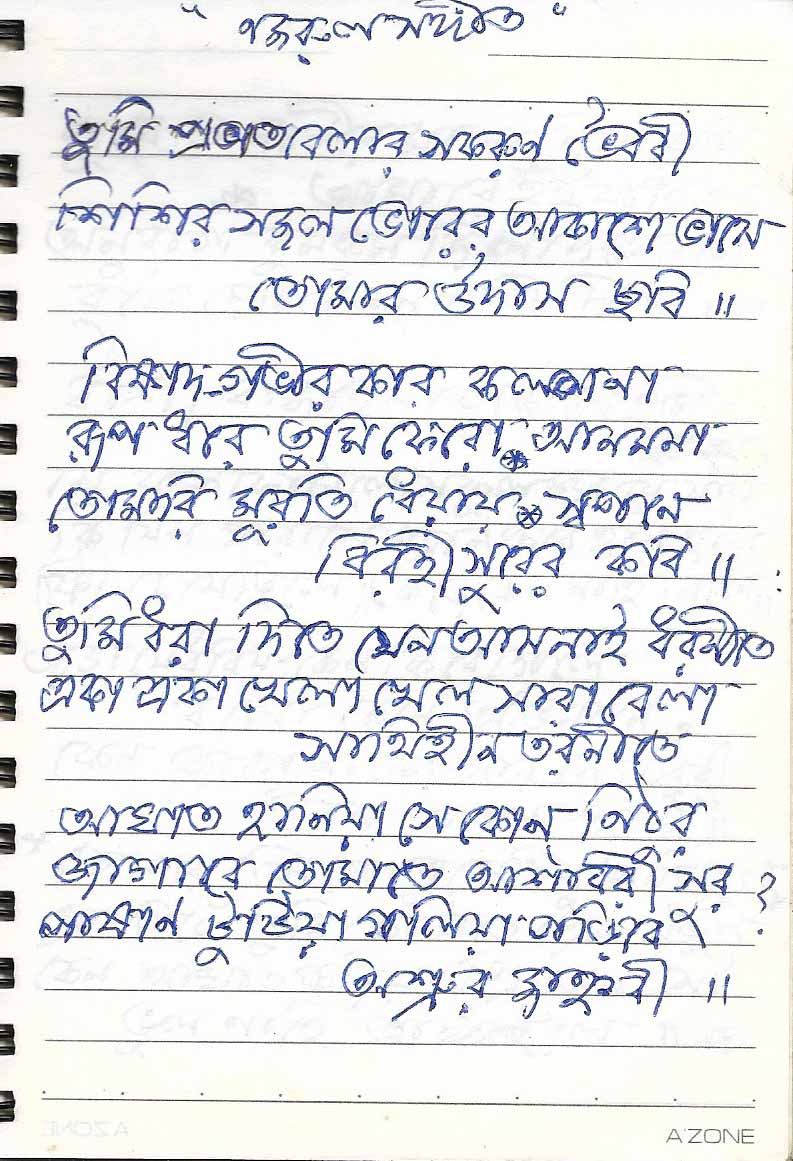 "নজরুল সঙ্গীত"
তুমি প্রভাত বেলার সকরুণ ভৈরবী
শিশির সজল ভোরের আকাশে ভাসে
তোমার উদাস ছবি ॥
বিষাদ-গভীর কার কল্পনা
রূপ ধরে তুমি ফেরো আনমনা
তোমারি মূরতি ধেয়ায় স্বপনে
বিরহী সুরের কবি ॥
তুমি ধরা দিতে যেন আস নাই ধরণীতে
একা একা খেলা খেল সারা বেলা
সাথিহীন তরনীতে
আঘাত হানিয়া সে কোন্ নিঠুর
জাগাবে তোমাতে আশাবরী সুর ?
পাষাণ টুটিয়া গলিয়া পড়িবে
অশ্রুর জাহ্নবী ॥
A'ZONE